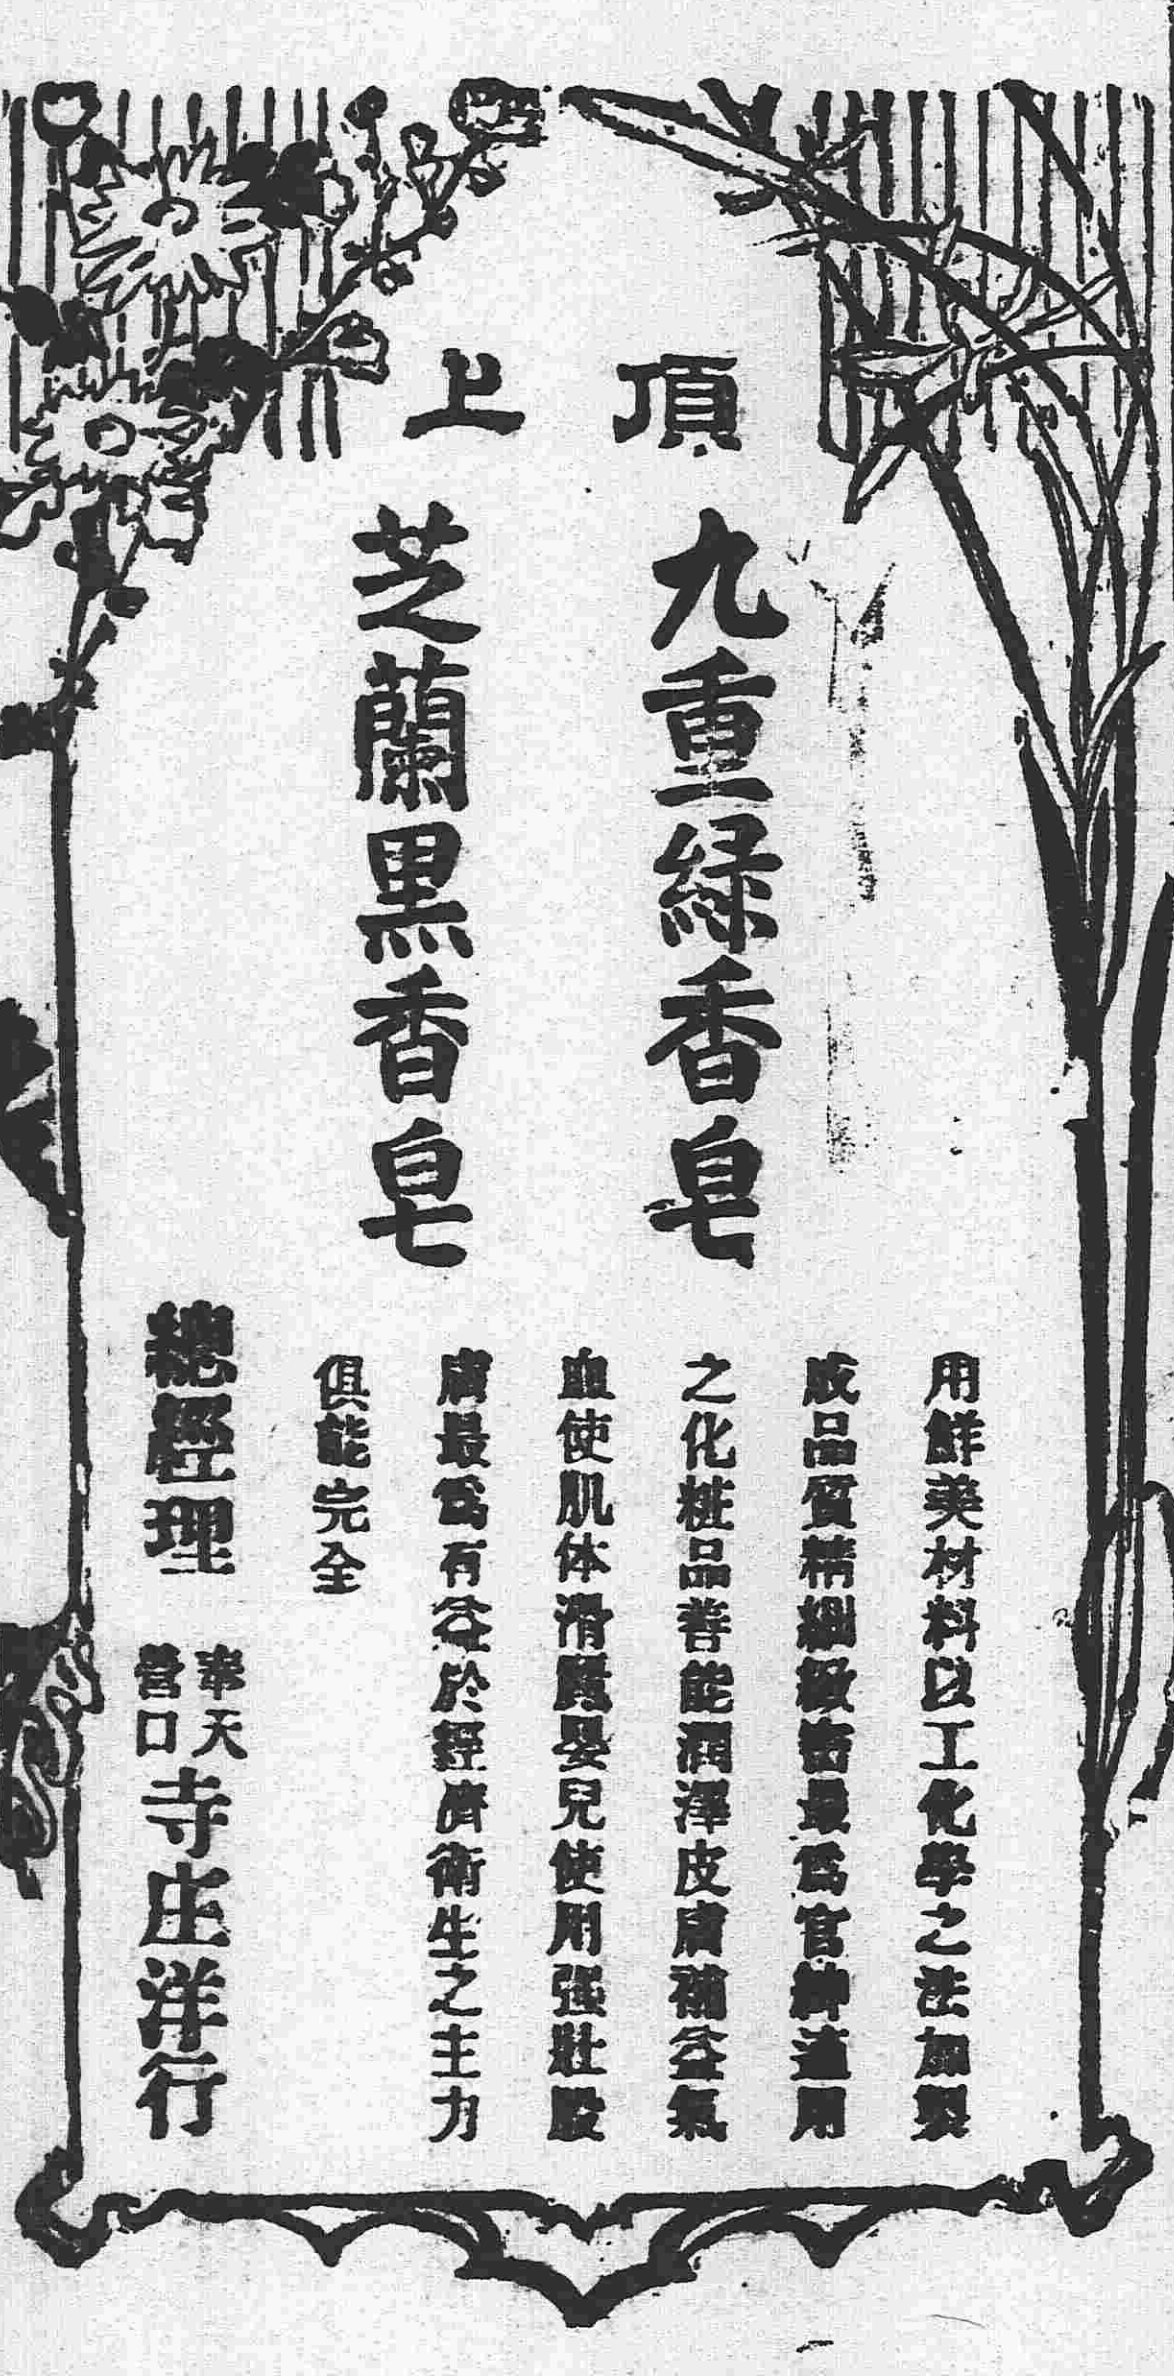 頂上
九重綠香皂
芝蘭黑香皂
用鮮美材料以工化學之法加製
成品質精細緻密最爲官紳適用
之化粧品善能潤澤皮膚補益氣
血使肌体滑膩嬰兒使用强壯股
膚最爲有益於經濟衛生之主力
俱能完全
總經理
奉天
營口
寺庄洋行